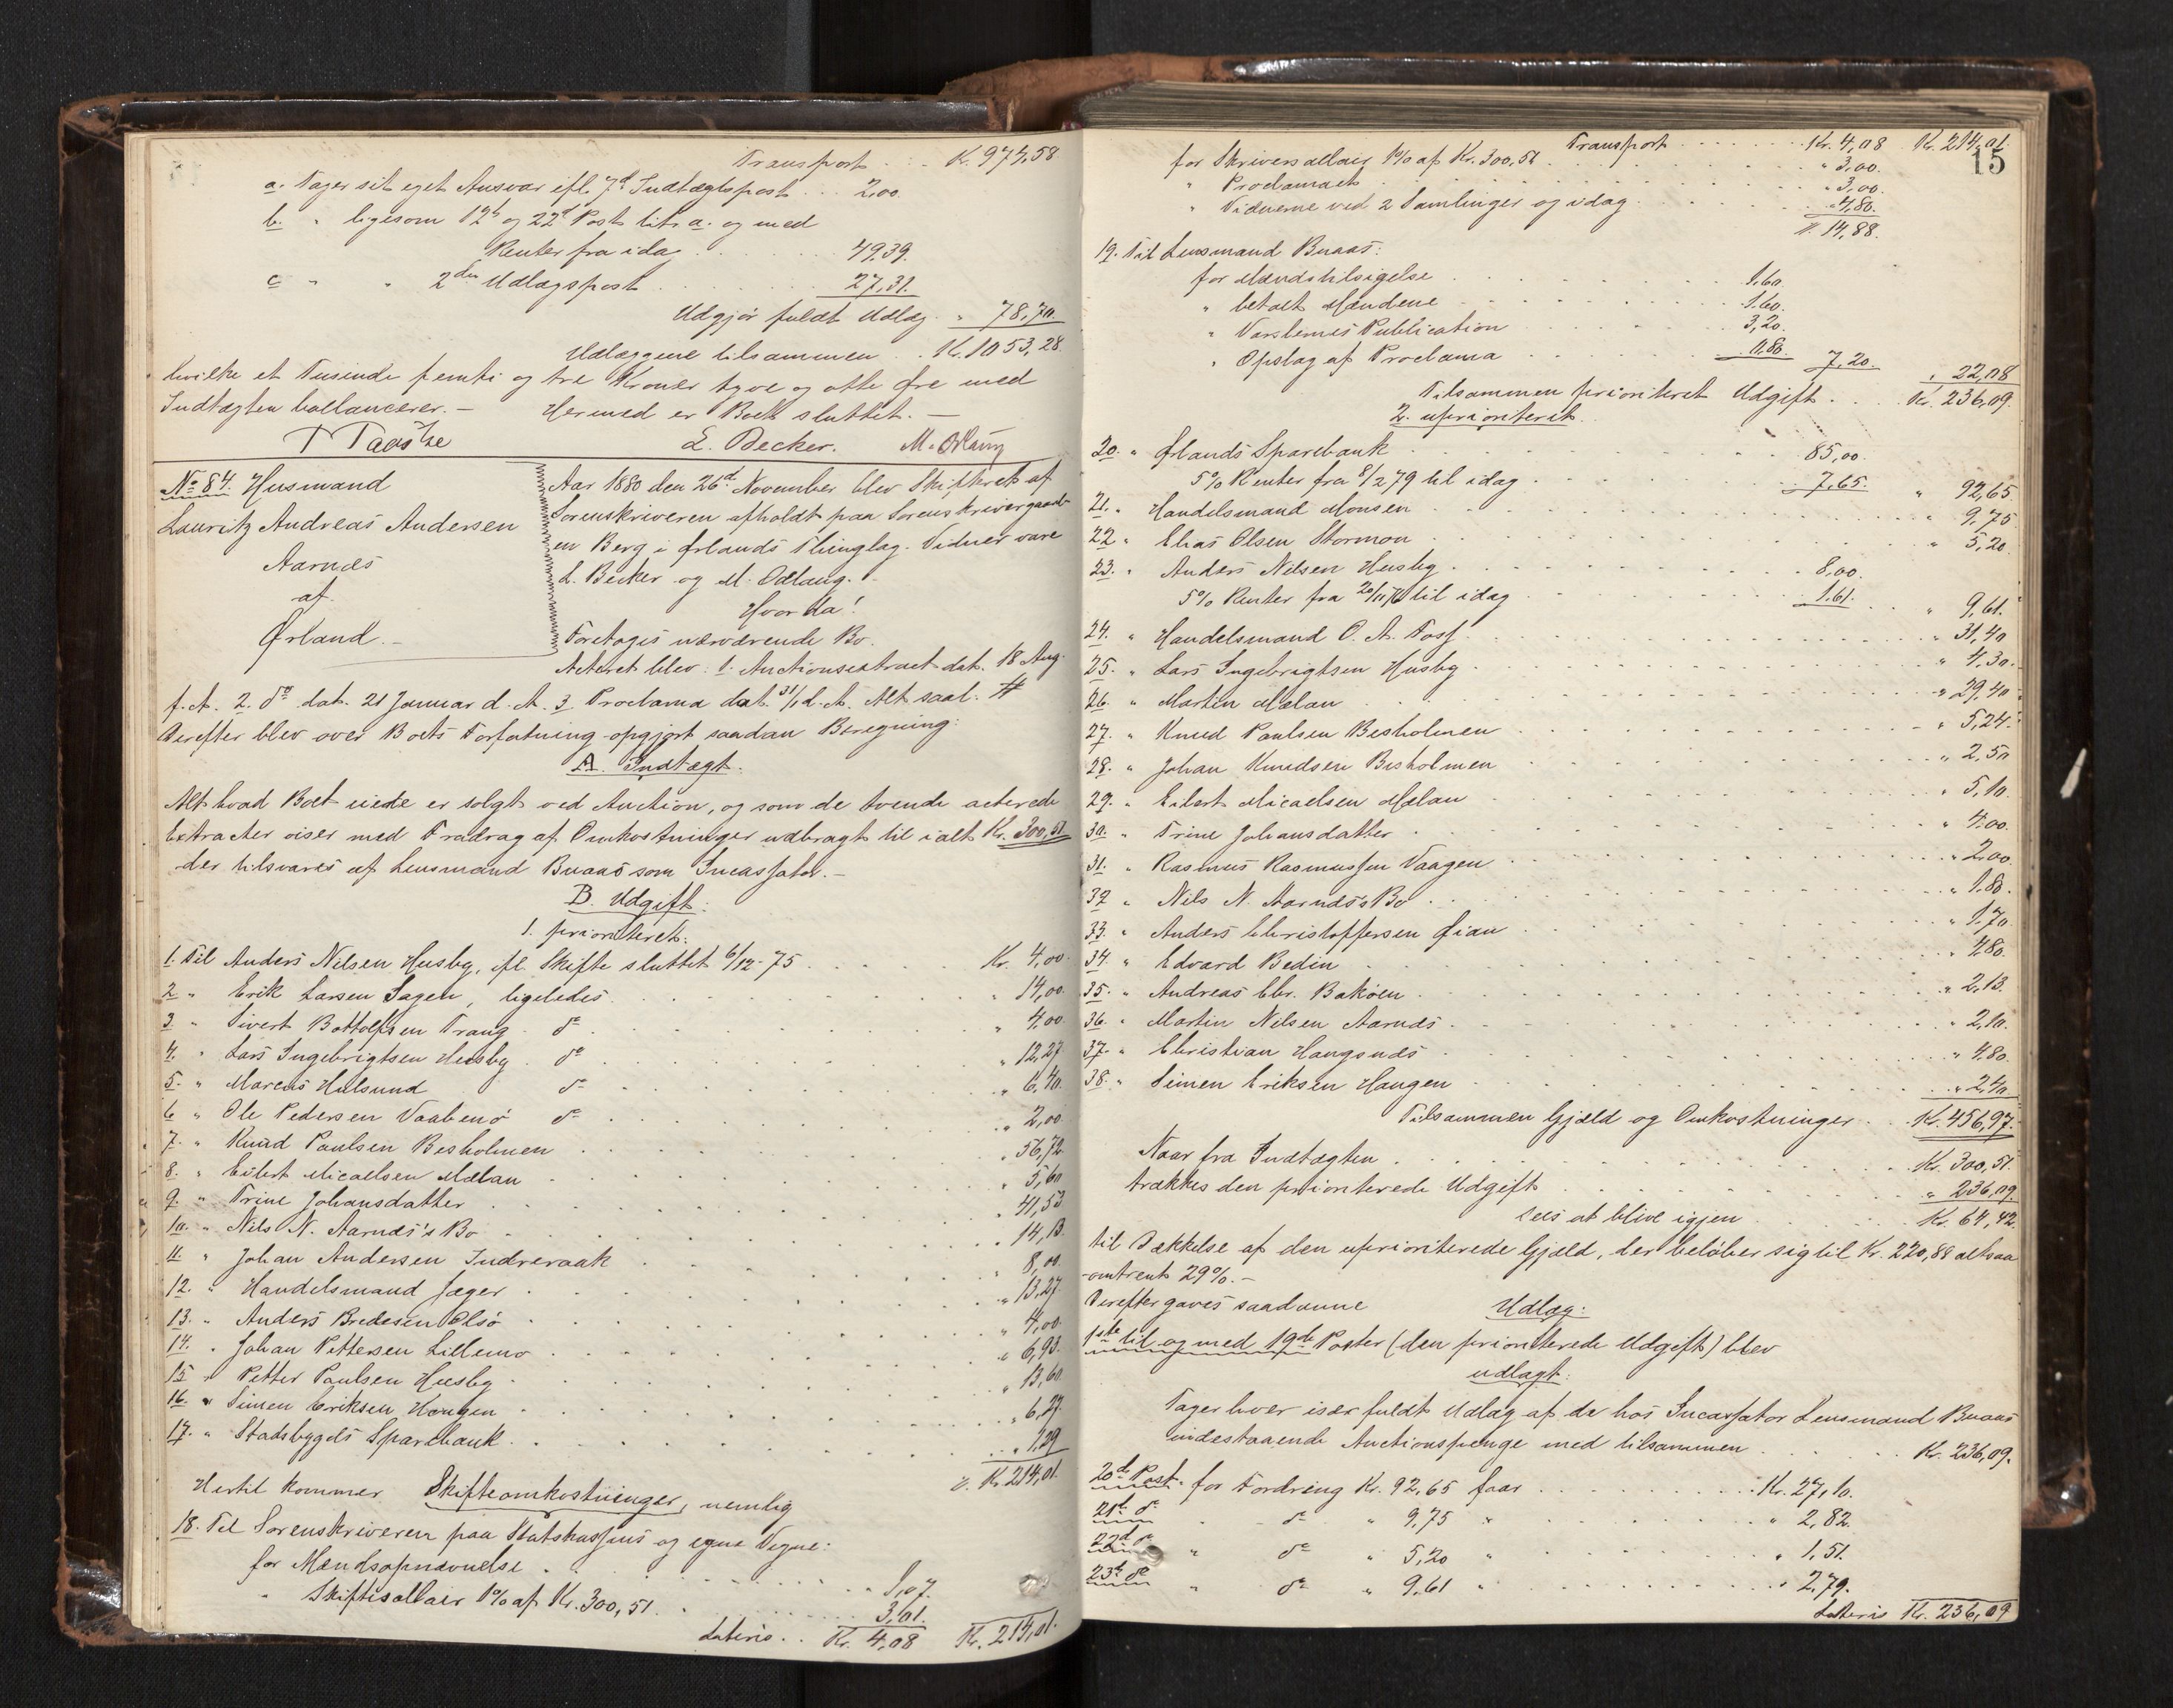 Transport . . . Kr. 974,58
a. Tager sit eget Ansvar ifl. 7d Indtægtspost . . . 2,00.
b. " ligesom 12te og 22d Post litr. a. og med
Renter fra idag . . . 49,39.
c " " 2den Udlægspost . . . 27,31.
Udgjør fuldt Udlæg . " 78,70.
Udlæggene tilsammen . . Kr. 1053,28.
hvilke et Tusende femti og tre Kroner tyve og otte Øre med
Indtægten ballancerer. — Hermed er Boet sluttet. —
L. Becker. M. Ødlaug
No 84. Husmand
Lauritz Andreas Andersen
Aarnæs
af
Ørland. —
Aar 1880 den 26d November blev Skifteret af
Sorenskriveren afholdt paa Sorenskrivergaard-
en Berg i Ørlands Thinglag. Vidner vare
L. Becker og M. Ødlaug. —
Hvorda!
Foretoges nærværende Bo.
Acteret blev: 1. Auctionsextract dat. 18 Aug.
f. A. 2. do dat. 21 Januar d. A. 3 Proclama dat. 31/1 d. A. Alt saal. #
Derefter blev over Boets Forfatning opgjort saadan Beregning:
A. Indtægt.
Alt hvad Boet eiede er solgt ved Auction, og som de tvende acterede
Extracter viser med Fradrag af Omkostninger udbragt til ialt Kr. 300,51
der tilsvares af Lensmand Buaas som Incassator. —
B. Udgift:
1. prioriteret:
1. Til Anders Nilsen Husby, ifl. Skifte sluttet 6/12-75 . . . Kr. 4,00.
2 " Erik Larsen Hagen, ligeledes . . . " 14,00.
3 " Sivert Bottolfsen Trang . do . . . " 4,00.
4. " Lars Ingebrigtsen Husby . do . . . " 12,27
5. " Marcus Hulsund do . . . " 6,40.
6 " Ole Pedersen Vaabenø do . . . " 2,00.
7. " Knud Paulsen Besholmen . . . " 56,72.
8. " Eilert Micaelsen Mælan . . . " 5,60
9. " Trine Johansdatter . . . " 41,53
10. " Nils N. Aarnæs's Bo . . . " 14,13.
11. " Johan Andersen Indreraak . . . " 8,00.
12. " Handelsmand Jæger . . . " 13,27.
13. " Anders Bredesen Olsø . . . " 4,00.
14. " Johan Pettersen Lillemo . . . " 6,93.
15 " Petter Paulsen Husby . . . " 13,60.
16. " Simen Eriksen Haugen . . . " 6,27.
17. " Stadsbygds Sparebank . . . " 1,29
Kr. 214,01.
Hertil kommer Skifteomkostninger, nemlig
18. Til Sorenskriveren paa Statskassens og egne Vegne:
for Mændsopnævnelse . . . 1,07.
" Skiftesallair 1% af Kr. 300,51 . . . 3,01.
Lateris . . Kr. 4,08 Kr. 214,01.
15
Transport . . . Kr. 4,08 Kr. 214,01.
for Skriversallair 1% af Kr. 300,51 . . . " 3,00.
" Proclamaet . . . " 3,00.
" Vidnerne ved 2 Samlinger og idag . . . " 4,80.
Kr. 14,88.
19. Til Lensmand Buaas:
for Mændstilsigelse . . . 1,60.
" betalt Mændene . . . 1,60.
" Varslernes Publication . . . 3,20.
" Opslag af Proclama . . . 0,80. 7,20. " 22,08
Tilsammen prioriteret Udgift . . . Kr. 236,09.
2. uprioriteret.
20. " Ørlands Sparebank . . . 85,00.
5% Renter fra 8/2 79 til idag . . . 7,65. " 92,65.
21. " Handelsmand Monsen . . . " 9,75
22 " Elias Olsen Stormon . . . " 5,20.
23. " Anders Nilsen Husby . . . 8,00.
5% Renter fra 20/11 76 til idag . . . 1,61. " 9,61.
24. " Handelsmand O. A. Foss . . . " 31,40
25. " Lars Ingebrigtsen Husby . . . " 4,30.
26. " Martin Mælan . . . " 29,40
27. " Knud Paulsen Besholmen . . . " 5,24.
28. " Johan Knudsen Besholmen . . . " 2,50
29. " Eilert Micaelsen Mælan . . . " 5,10.
30. " Trine Johansdatter . . . " 4,00.
31. " Rasmus Rasmussen Vaagen . . . " 2,00.
32 " Nils N. Aarnæs's Bo . . . " 1,80.
33. " Anders Christoffersen Øian . . . " 1,70
34 " Edvard Bedin . . . " 4,80.
35. " Andreas Chr. Bakøen . . . " 2,13.
36. " Martin Nilsen Aarnæs . . . " 2,10.
37. " Christian Haugsnæs . . . " 4,80.
38. " Simen Eriksen Haugen . . . " 2,40
Tilsammen Gjæld og Omkostninger . . . Kr. 456,97.
Naar fra Indtægten . . . Kr. 300,51.
trækkes den prioriterede Udgift . . . " 236,09
sees at blive igjen . . . Kr. 64,42.
til Dækkelse af den uprioriterede Gjæld, der beløber sig til Kr. 220,88 altsaa
omtrent 29%. —
Derefter gaves saadanne Udlæg:
1ste til og med 19de Poster (den prioriterede Udgift) blev
udlagt:
Tager hver især fuldt Udlæg af de hos Incassator Lensmand Buaas
indestaaende Auctionspenge med tilsammen . . . Kr. 236,09.
20de Post. for Fordring Kr. 92,65 faar . . . Kr. 27,10.
21de do " do " 9,75 " . . . " 2,82.
22d do " do " 5,20 " . . . " 1,51.
23de do " do " 9,61 " . . . " 2,79.
Lateris Kr. 236,09